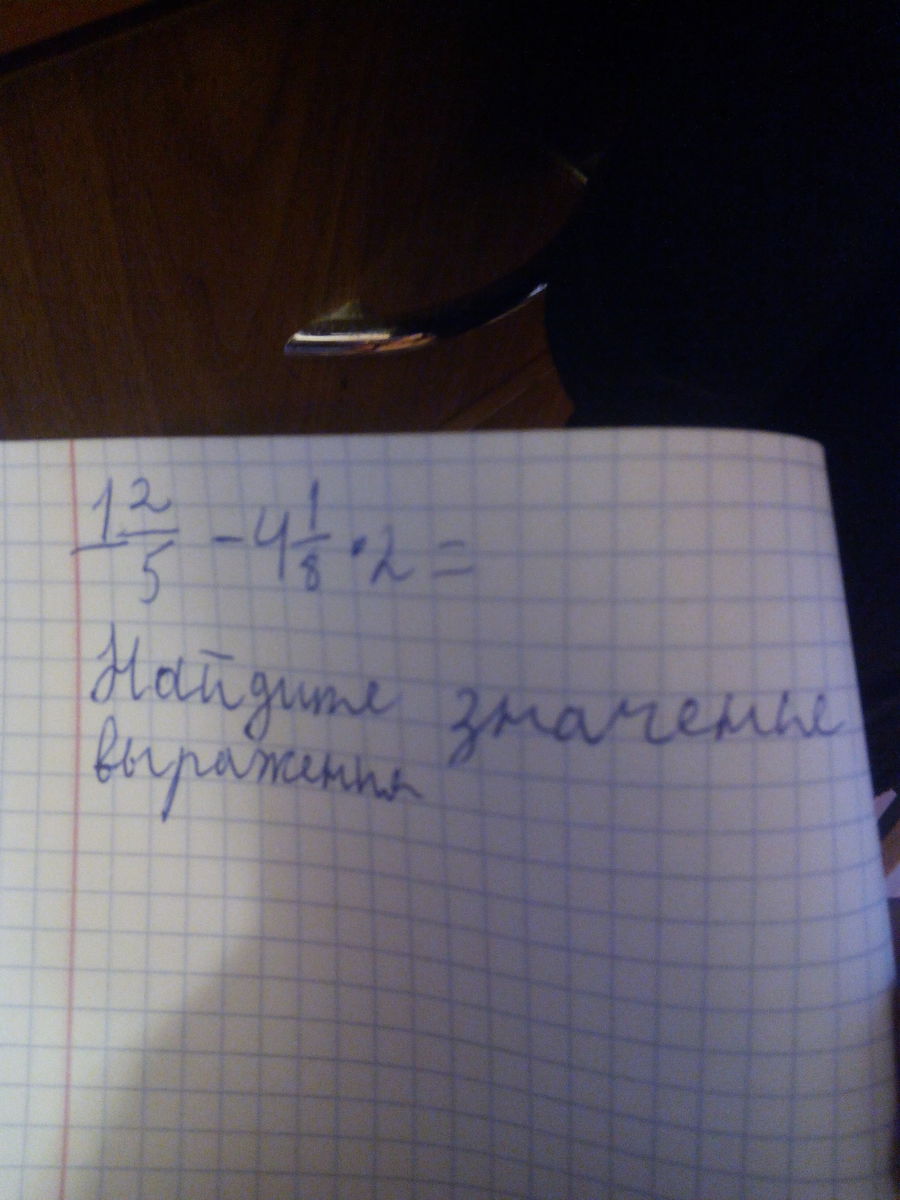 1 2/5 - 4 1/8 · 2 =
Найдите значение
выражения